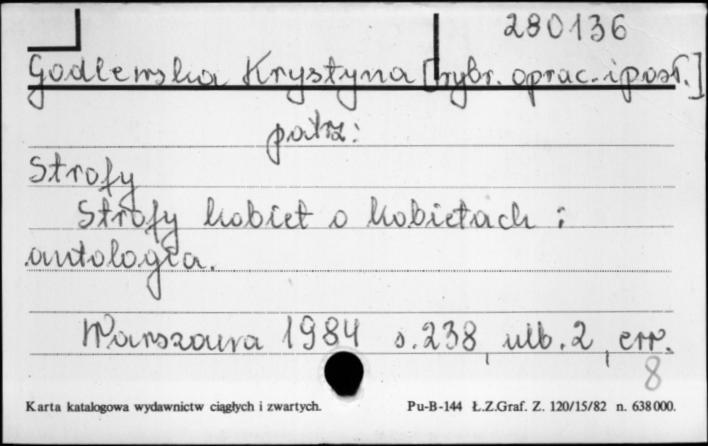 280136
Godlewska Krystyna [wybr. oprac. i posł.]
patrz:
Strofy
Strofy kobiet o kobietach :
antologia.
Warszawa 1984 s. 238, ulb. 2, err.
8
Karta katalogowa wydawnictw ciągłych i zwartych. Pu-B-144 Ł.Z.Graf. Z. 120/15/82 n. 638000.